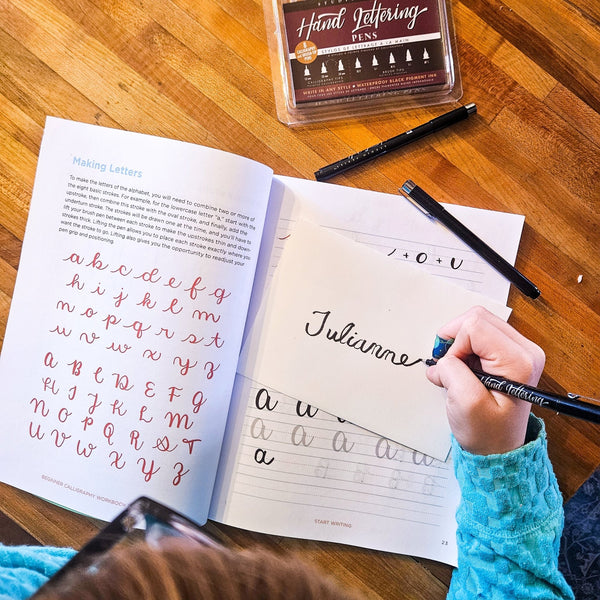 Hand Lettering
PENS
STYLOS DE LETTRAGE À LA MAIN
WRITE IN ANY STYLE • WATERPROOF BLACK PIGMENT INK
Making Letters
To make the letters of the alphabet, you will need to combine two or more of
the eight basic strokes. For example, for the lowercase letter "a," start with the
upstroke, then combine this stroke with the oval stroke, and finally, add the
underturn stroke. The strokes will be drawn one at the time, and you'll have to
lift your brush pen between each stroke to make the upstrokes thin and down-
strokes thick. Lifting the pen allows you to place each stroke exactly where you
want the stroke to go. Lifting also gives you the opportunity to readjust your
pen grip and positioning.
a b c d e f g
h i j k l m
n o p q r s t
u v w x y z
A B C D E F G
H I J K L M
N O P Q R S T
U V W X Y Z
BEGINNER CALLIGRAPHY WORKBOOK
+ O + U
Julianne
Hand Lettering
a a
a a a a a
a a a a a
START WRITING
23